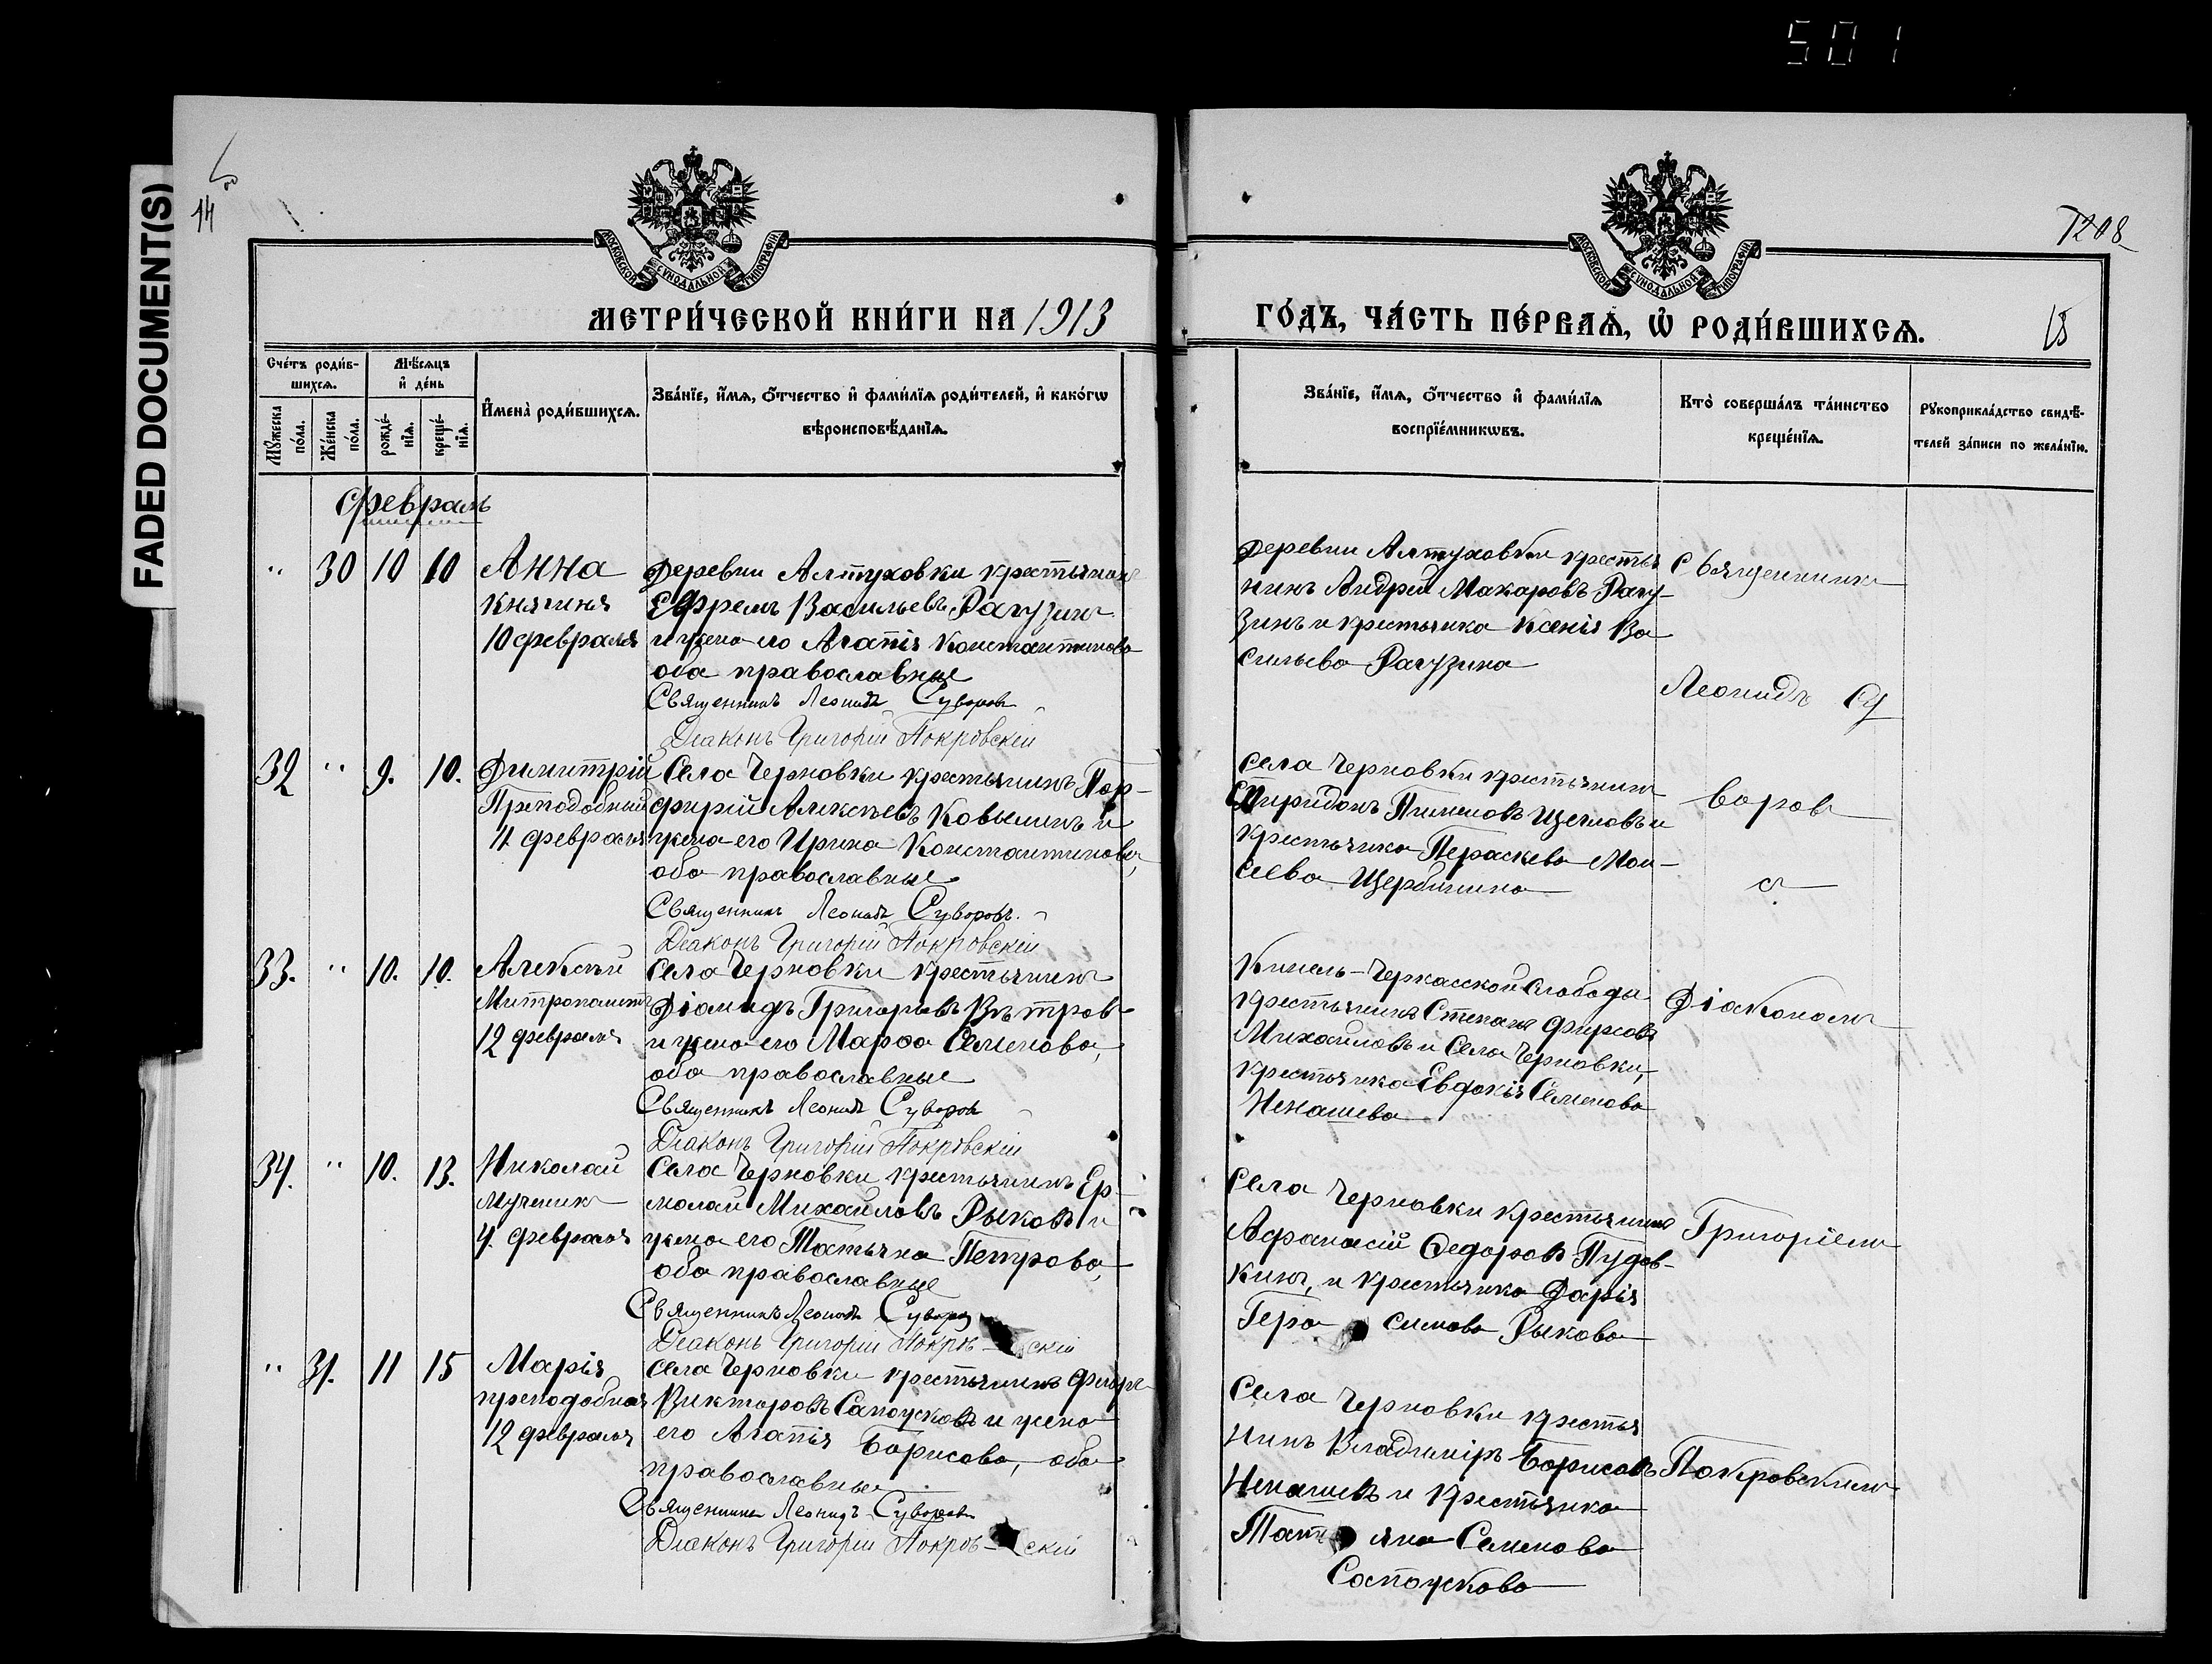 501
FADED DOCUMENT(S)
14
1208
15
МОСКОВСКОЙ СУНОДАЛЬНОЙ ТИПОГРАФІИ
МОСКОВСКОЙ СУНОДАЛЬНОЙ ТИПОГРАФІИ
МЕТРИ́ЧЕСКОЙ КНИ́ГИ НА 1913
ГО́ДЪ, ЧА́СТЬ ПЕ́РВАѦ, Ѡ҆ РОДИ́ВШИХСѦ.
Сче́тъ роди́в-
шихсѧ.
Мꙋ́жеска по́ла.
Же́нска по́ла.
Мѣ́сѧцъ
и҆ де́нь
рожде́-нїѧ.
креще́-нїѧ.
И҆мена̀ роди́вшихсѧ.
Зва́нїе, и҆́мѧ, ѻ҆́тчество и҆ фами́лїѧ роди́телей, и҆ како́гѡ
вѣроисповѣ́данїѧ.
Зва́нїе, и҆́мѧ, ѻ҆́тчество и҆ фами́лїѧ
воспрїе́мникѡвъ.
Кто̀ соверша́лъ та́инство
креще́нїѧ.
Рꙋкоприкла́дство свидѣ́-
телей за́писи по жела́нїю.
Февраль
" 30 10 10 Анна
Княгиня
10 февраля
Деревни Алтуховки крестьянинъ
Ефремъ Васильевъ Рагузинъ
и жена его Агапія Константинова
оба православные
Священникъ Леонидъ Суворовъ
Діаконъ Григорій Покровскій
Деревни Алтуховки крестья
нинъ Андрей Макаровъ Рагу-
зинъ и крестьянка Ксенія Ва
сильева Рагузина
Священникъ
Леонидъ Су
32 " 9. 10. Димитрій
Преподобный
11 февраля
Села Черновки крестьянинъ Пор-
фирій Алексѣевъ Ковылинъ и
жена его Ирина Константинова,
оба православные
Священникъ Леонидъ Суворовъ.
Діаконъ Григорій Покровскій
Села Черновки крестьянинъ
Спиридонъ Пименовъ Щегловъ и
крестьянка Параскева Мои-
сеева Щербинина
воровъ
съ
33. " 10. 10. Алексѣй
Митрополитъ
12 февраля
Села Черновки крестьянинъ
Діамидъ Григорьевъ Вѣтровъ
и жена его Марѳа Семенова,
оба православные
Священникъ Леонидъ Суворовъ
Діаконъ Григорій Покровскій
Кинель-Черкасской Слободы
крестьянинъ Степанъ Фирсовъ
Михайловъ и Села Черновки,
крестьянка Евдокія Семенова
Ненашева
Діакономъ
34. " 10. 13. Николай
мученикъ
4. февраля
Села Черновки крестьянинъ Ер-
молай Михайловъ Рыковъ и
жена его Татьяна Петрова,
оба православные
Священникъ Леонидъ Суворовъ
Діаконъ Григорій Покров-скій
Села Черновки крестьянинъ
Аѳанасій Ѳедоровъ Пудов-
кинъ, и крестьянка Дарія
Гера симова Рыкова
Григоріемъ
" 31. 11 15 Марія
преподобная
12 февраля
Села Черновки крестьянинъ Флоръ
Викторовъ Сапожковъ и жена
его Агапія Борисова, оба
православные
Священникъ Леонидъ Суворовъ
Діаконъ Григорій Покров-скій
Села Черновки крестья
нинъ Владиміръ Борисовъ
Ненашевъ и крестьянка
Тать яна Семенова
Сапожкова
Покровскимъ